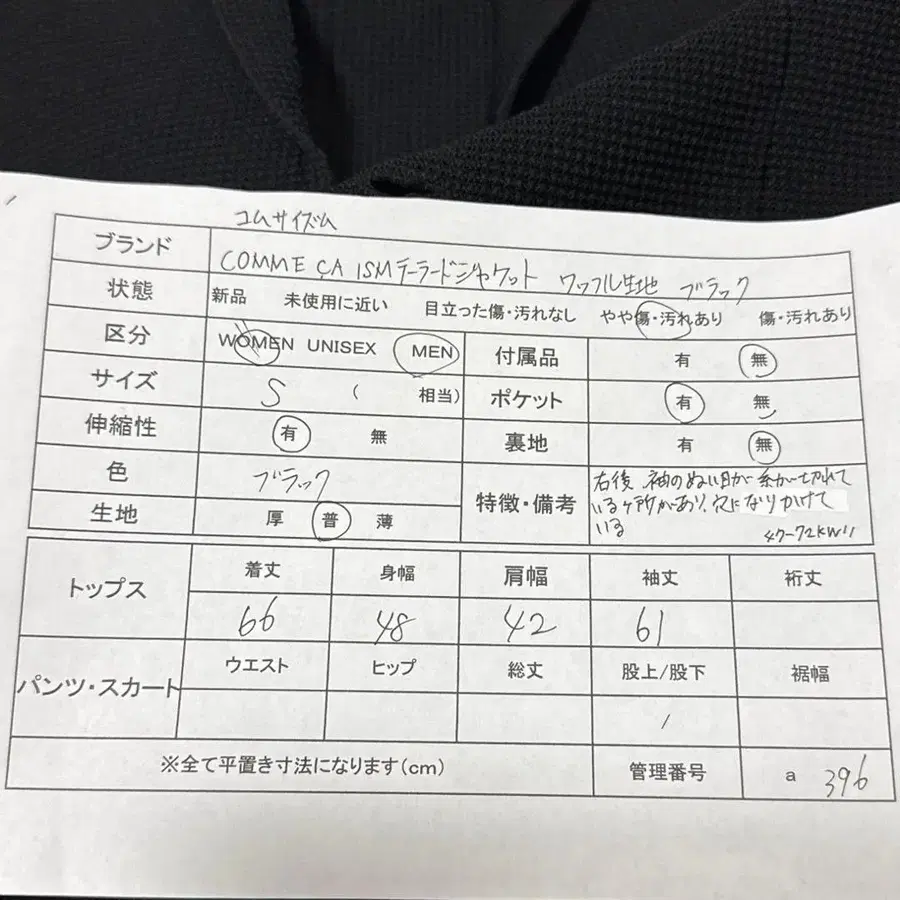 コムサイズム
ブランド COMME ÇA ISM テーラードジャケット ワッフル生地 ブラック
状態 新品 未使用に近い 目立った傷・汚れなし やや傷・汚れあり 傷・汚れあり
区分 WOMEN UNISEX MEN 付属品 有 無
サイズ S ( 相当) ポケット 有 無
伸縮性 有 無 裏地 有 無
色 ブラック 特徴・備考 右後 袖のぬい目が 糸が切れて
いるヶ所があり、穴になりかけて
いる
生地 厚 普 薄
トップス 着丈 身幅 肩幅 袖丈 裄丈
66 48 42 61
パンツ・スカート ウエスト ヒップ 総丈 股上/股下 裾幅
/
※全て平置き寸法になります(cm) 管理番号 a 396